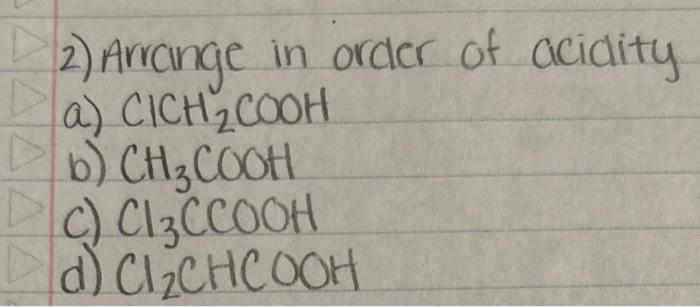 2) Arrange in order of acidity
a) ClCH₂COOH
b) CH₃COOH
c) Cl₃CCOOH
d) Cl₂CHCOOH